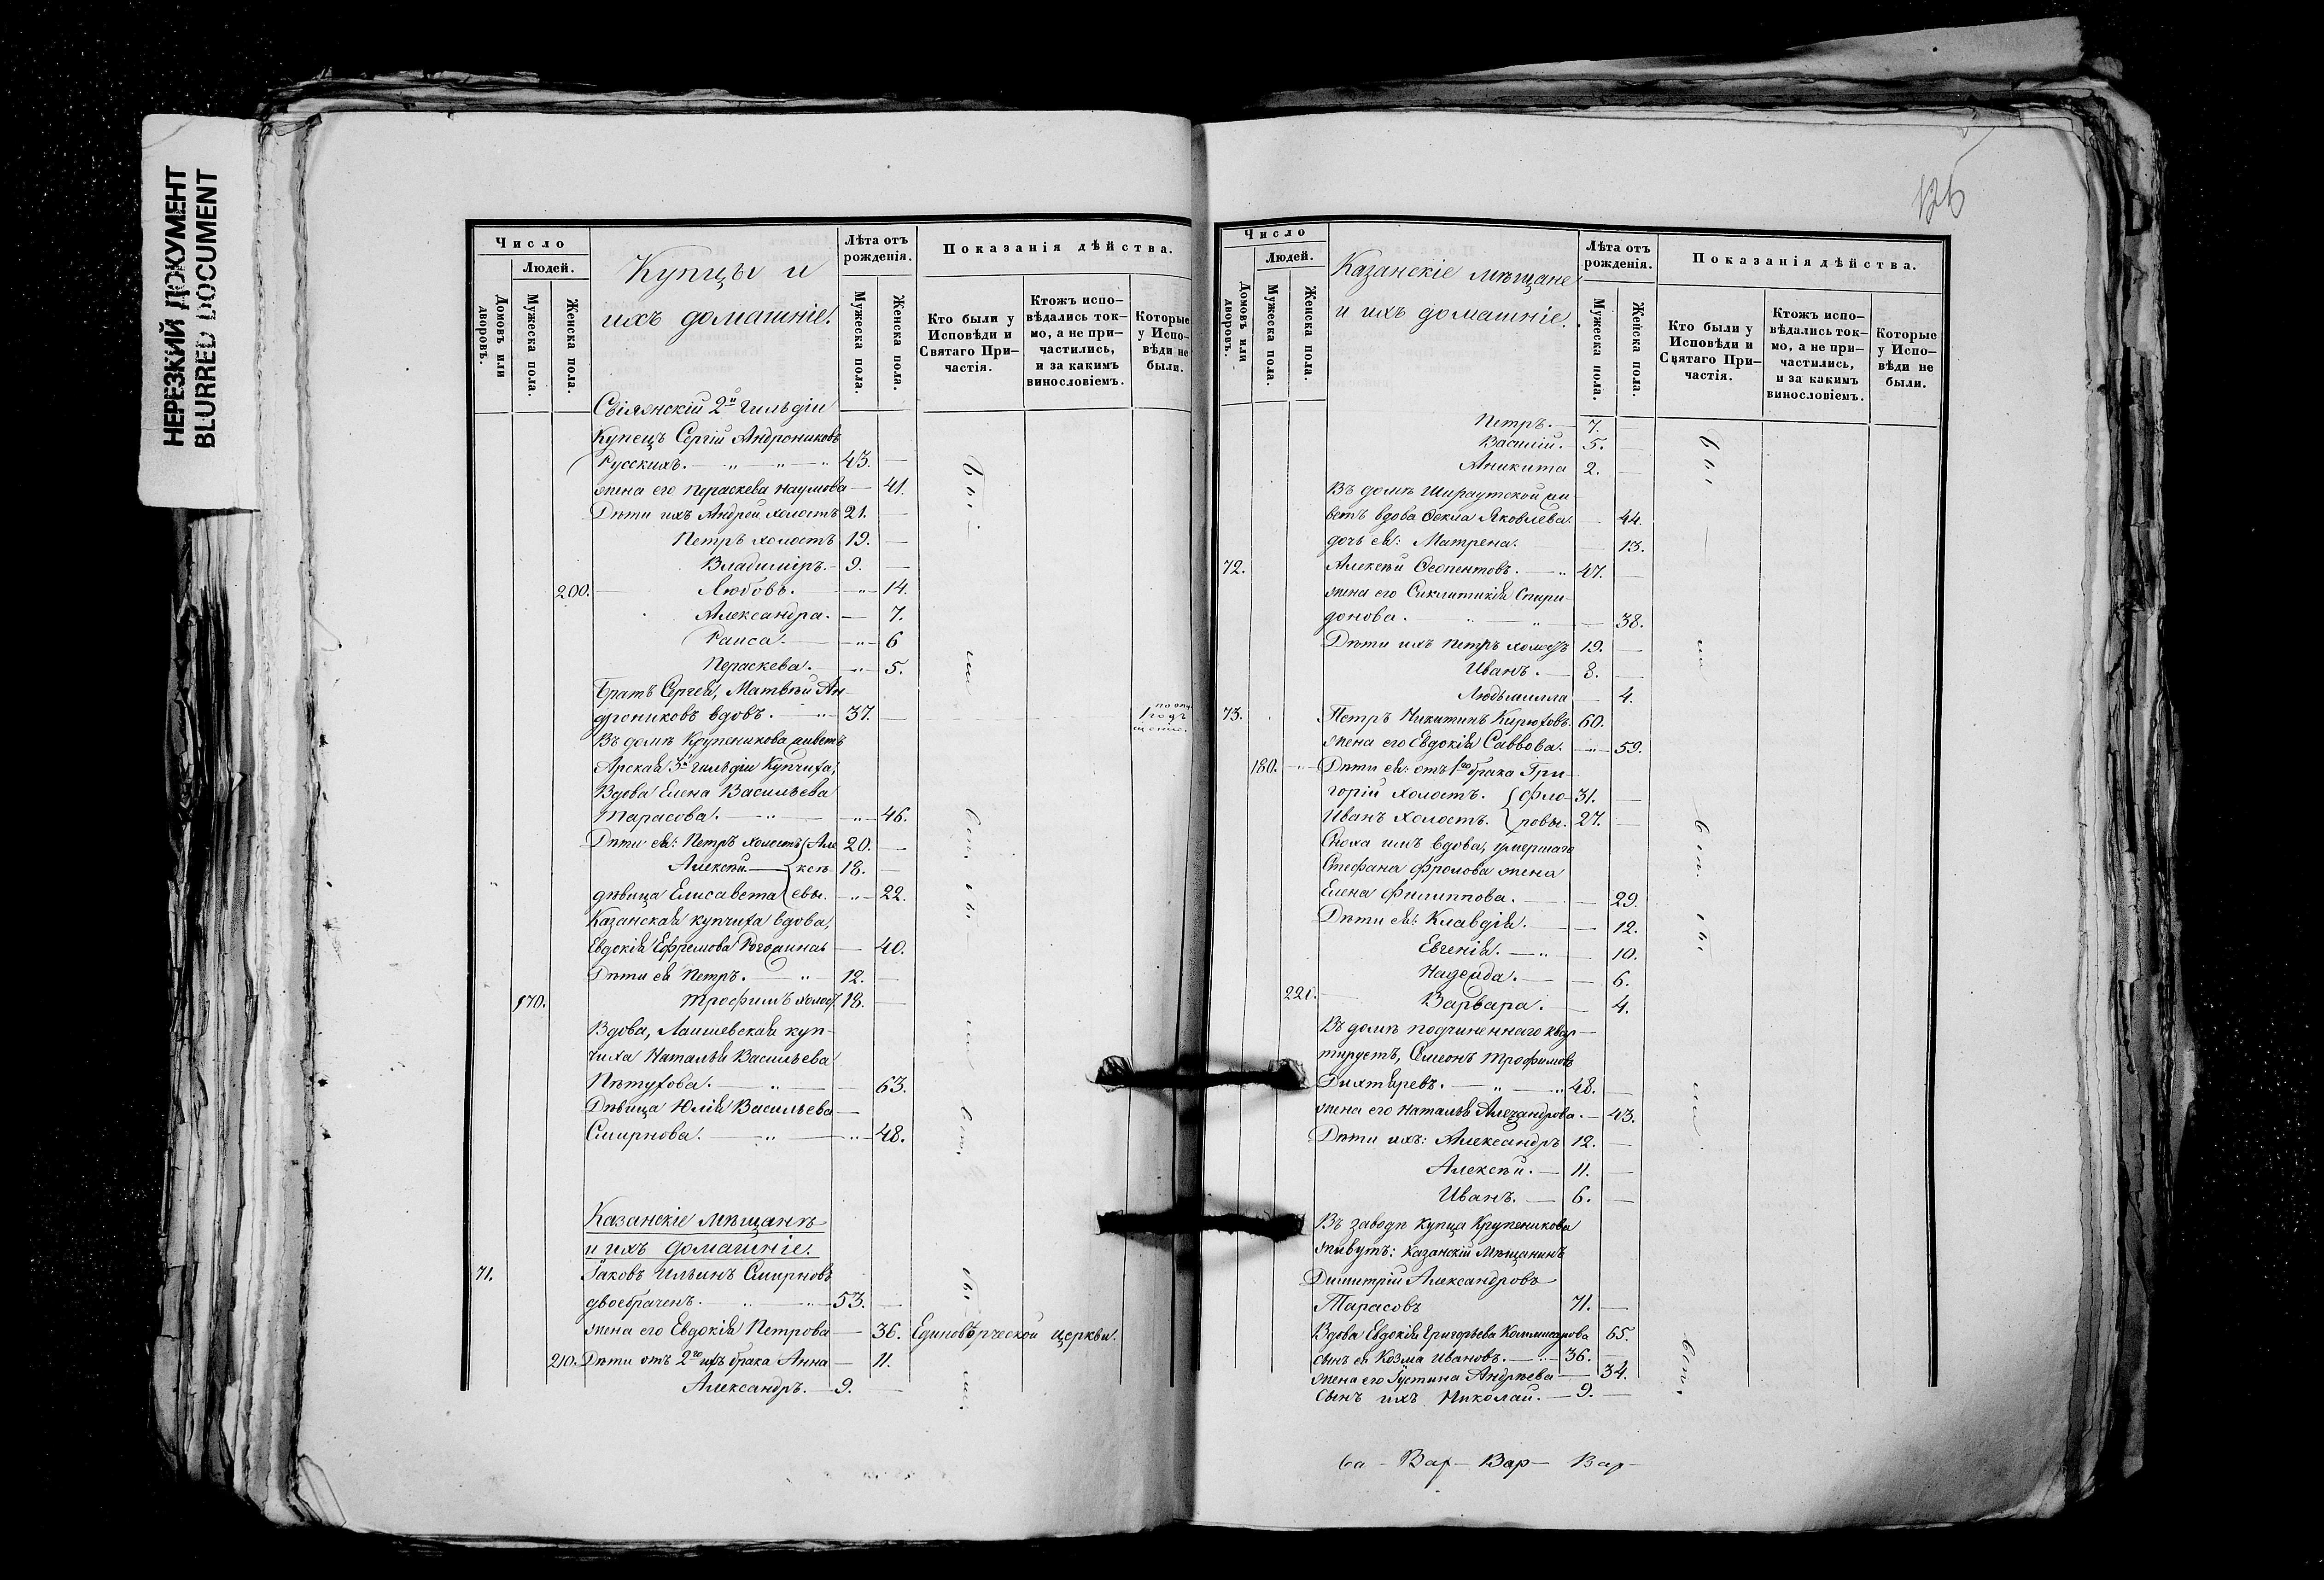 НЕРЕЗКИЙ ДОКУМЕНТ
BLURRED DOCUMENT
Число
Людей.
Домовъ или дворовъ.
Мужеска пола.
Женска пола.
Купцы и
ихъ домашніе.
Лѣта отъ рожденія.
Мужеска пола.
Женска пола.
Показанія дѣйства.
Кто были у Исповѣди и Святаго При-частія.
Ктожъ испо-вѣдались ток-мо, а не при-частились, и за какимъ винословіемъ.
Которые у Испо-вѣди не были.
Свіяжскій 2й гильдіи
Купецъ Сергій Андрониковъ
Русскихъ. 43.
жена его Пераскева Наумова 41.
Дѣти ихъ Андрей холостъ 21.
Петръ холостъ 19.
Владиміръ. 9.
200. Любовь. 14.
Александра. 7.
Раиса. 6
Пераскева. 5.
Братъ Сергея, Матвѣй Ан-
дрониковъ вдовъ. 37.
Въ домѣ Крупеникова живетъ
Арская 3й гильдіи Купчиха,
Вдова Елена Васильева
Тарасова. 46.
Дѣти ея: Петръ холостъ Але 20.
Алексѣй. ксѣ- 18.
дѣвица Елисавета евы. 22.
Казанская купчиха вдова,
Евдокія Ефремова Рогожина 40.
Дѣти ея Петръ. 12.
170. Трофимъ холост 18.
Вдова, Лаишевская куп-
чиха Наталья Васильева
Пѣтухова. 63.
Дѣвица Юлія Васильева
Смирнова. 48.
Казанскіе мѣщанѣ
и ихъ домашніе.
71. Іаковъ Ильинъ Смирновъ
двоебраченъ. 53.
жена его Евдокія Петрова 36. Единовѣрческой церкви.
210. Дѣти отъ 2го ихъ брака Анна 11.
Александръ. 9.
126
Число
Людей.
Домовъ или дворовъ.
Мужеска пола.
Женска пола.
Казанскіе мѣщане
и ихъ домашніе.
Лѣта отъ рожденія.
Мужеска пола.
Женска пола.
Показанія дѣйства.
Кто были у Исповѣди и Святаго При-частія.
Ктожъ испо-вѣдались ток-мо, а не при-частились, и за какимъ винословіемъ.
Которые у Испо-вѣди не были.
Петръ. 7.
Василій. 5.
Аникита 2.
Въ домѣ жи-
ветъ вдова Фекла Яковлева. 44.
дочь ея: Матрена. 13.
72. Алексѣй Феопентовъ. 47.
жена его Сиклитикія Спири-
донова. 38.
Дѣти ихъ Петръ холостъ 19.
Иванъ. 8.
Людьмилла 4.
73. Петръ Никитинъ Кирюховъ. 60.
жена его Евдокія Саввова. 59.
180. Дѣти ея: отъ 1го брака Гри-
горій холостъ. Фло- 31.
Иванъ холостъ. ровы. 27.
Сноха ихъ вдова, умершаго
Стефана Фролова жена
Елена Филиппова. 29.
Дѣти ея: Клавдія. 12.
Евгенія. 10.
Надежда. 6.
221. Варвара. 4.
Въ домѣ подчиненнаго квар-
тируетъ, Семеонъ Трофимовъ
Дихтяревъ. 48.
жена его Наталья Александрова. 43.
Дѣти ихъ: Александръ 12.
Алексѣй. 11.
Иванъ. 6.
Въ заводѣ купца Крупеникова
живутъ: Казанскій Мѣщанинъ
Димитрій Александровъ
Тарасовъ 71.
Вдова Евдокія Григорьева Коммисарова 65.
сынъ ея Козма Ивановъ. 36.
жена его Іустина Андрѣева 34.
Сынъ ихъ Николай. 9.
ба - Вар - Вар - Вар -